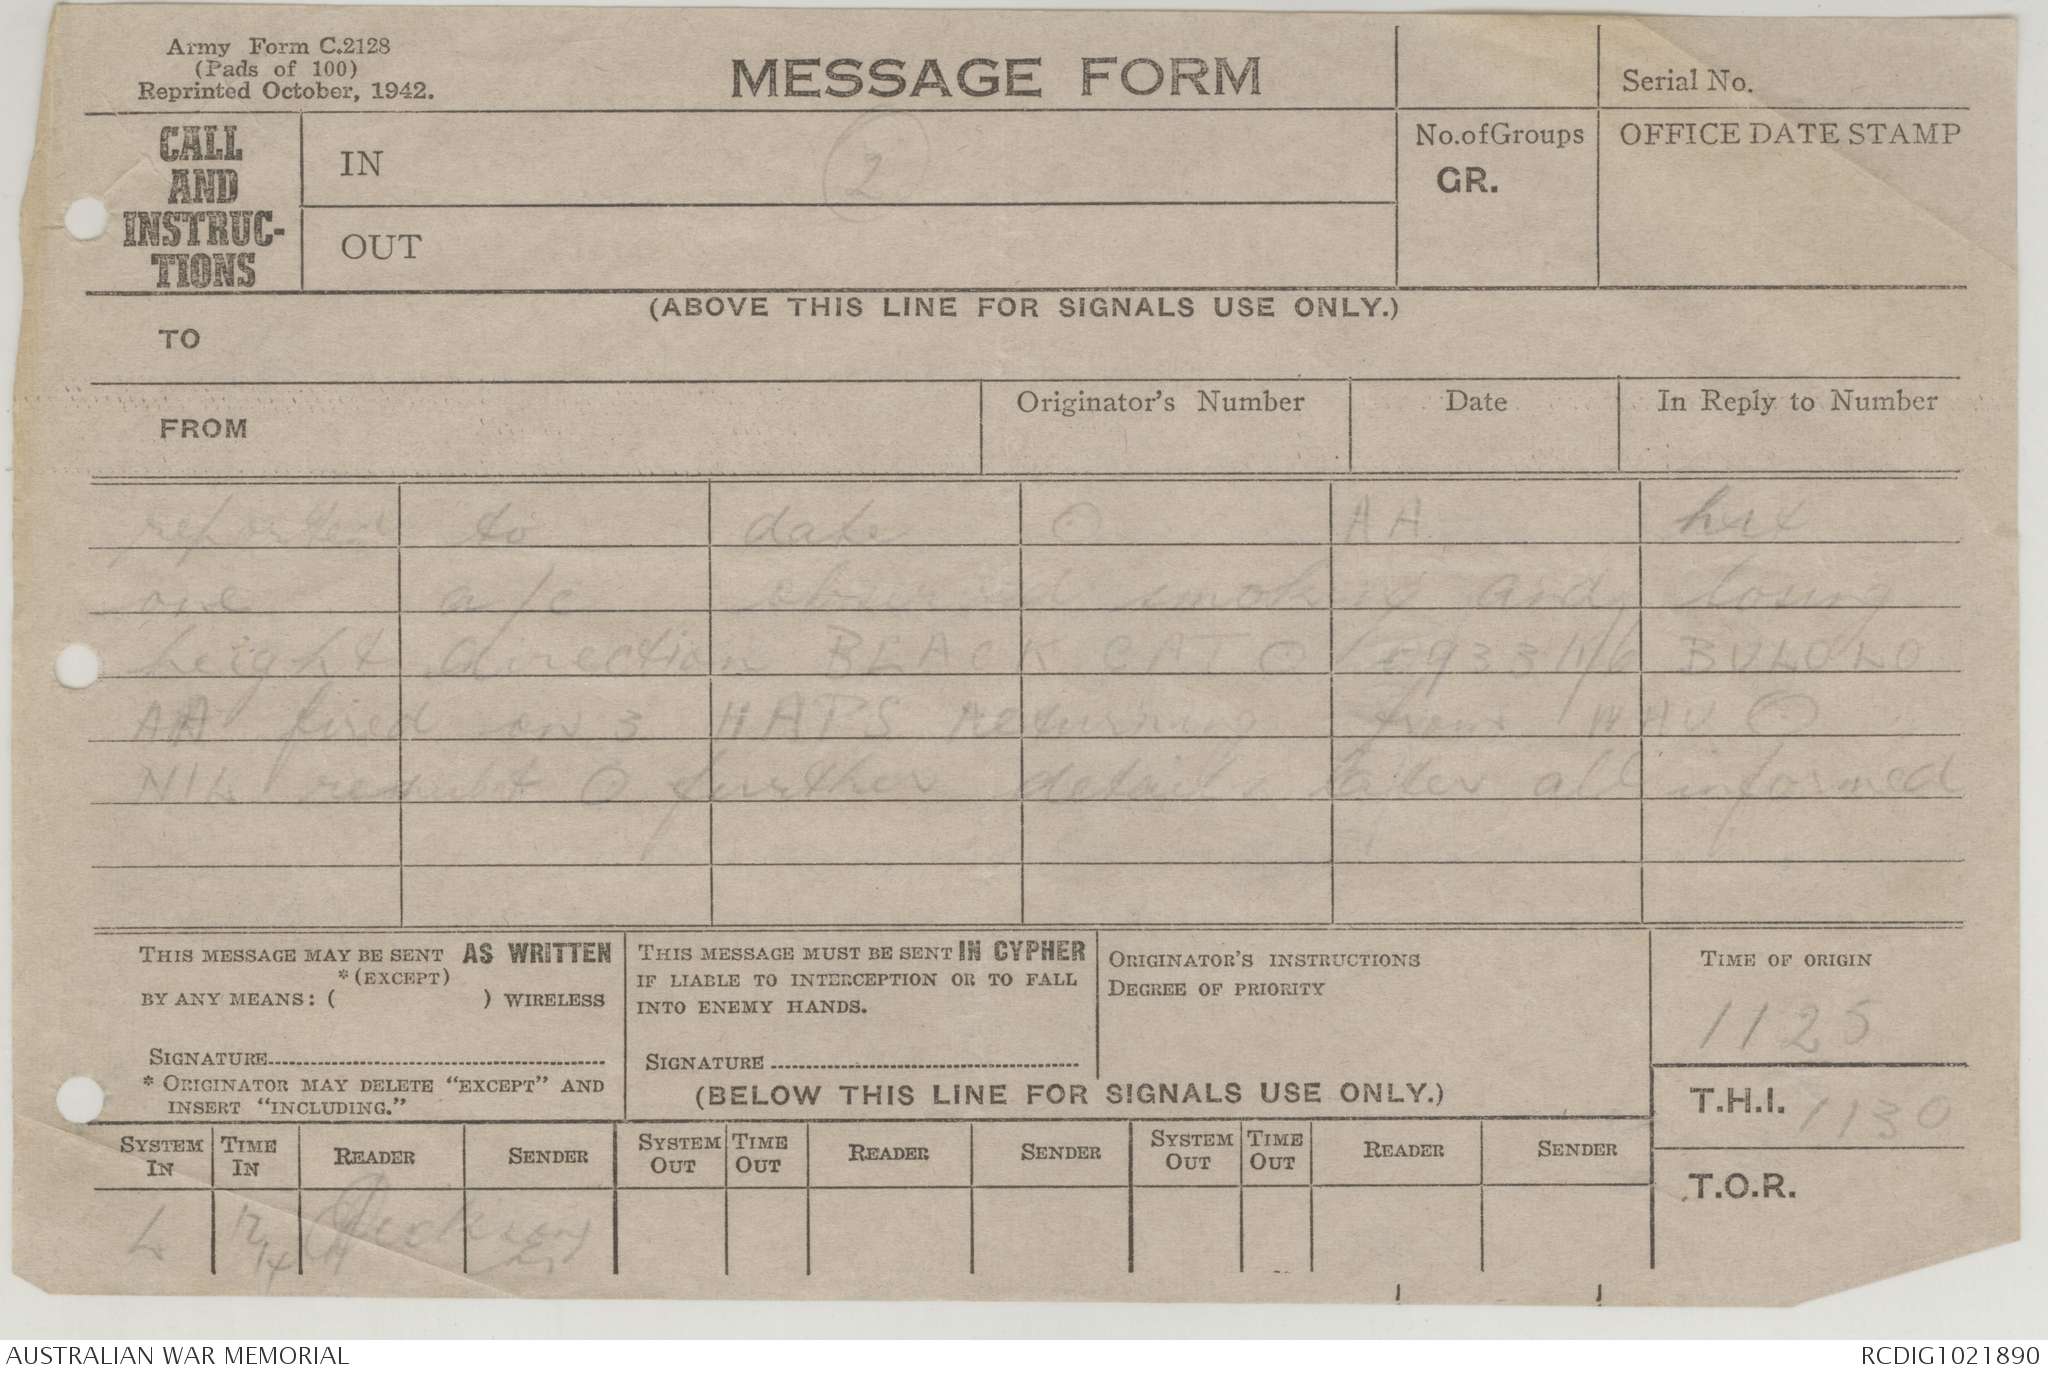 Army Form C.2128
(Pads of 100)
Reprinted October, 1942.
MESSAGE FORM
Serial No.
CALL AND INSTRUC-TIONS
IN
2
No. of Groups
GR.
OFFICE DATE STAMP
OUT
(ABOVE THIS LINE FOR SIGNALS USE ONLY.)
TO
FROM
Originator's Number
Date
In Reply to Number
reported to date O AA hit
one a/c observed smoking and losing
height direction BLACK CAT O 0933 11/6 BULOLO
AA fired on 3 HAPS returning from WAU O
NIL result O further details later all informed
THIS MESSAGE MAY BE SENT AS WRITTEN
*(EXCEPT)
BY ANY MEANS: ( ) WIRELESS
SIGNATURE
* ORIGINATOR MAY DELETE "EXCEPT" AND
INSERT "INCLUDING."
THIS MESSAGE MUST BE SENT IN CYPHER
IF LIABLE TO INTERCEPTION OR TO FALL
INTO ENEMY HANDS.
SIGNATURE
ORIGINATOR'S INSTRUCTIONS
DEGREE OF PRIORITY
TIME OF ORIGIN
1125
(BELOW THIS LINE FOR SIGNALS USE ONLY.)
T.H.I. 1130
T.O.R.
SYSTEM IN TIME IN READER SENDER SYSTEM OUT TIME OUT READER SENDER SYSTEM OUT TIME OUT READER SENDER
L
AUSTRALIAN WAR MEMORIAL
RCDIG1021890